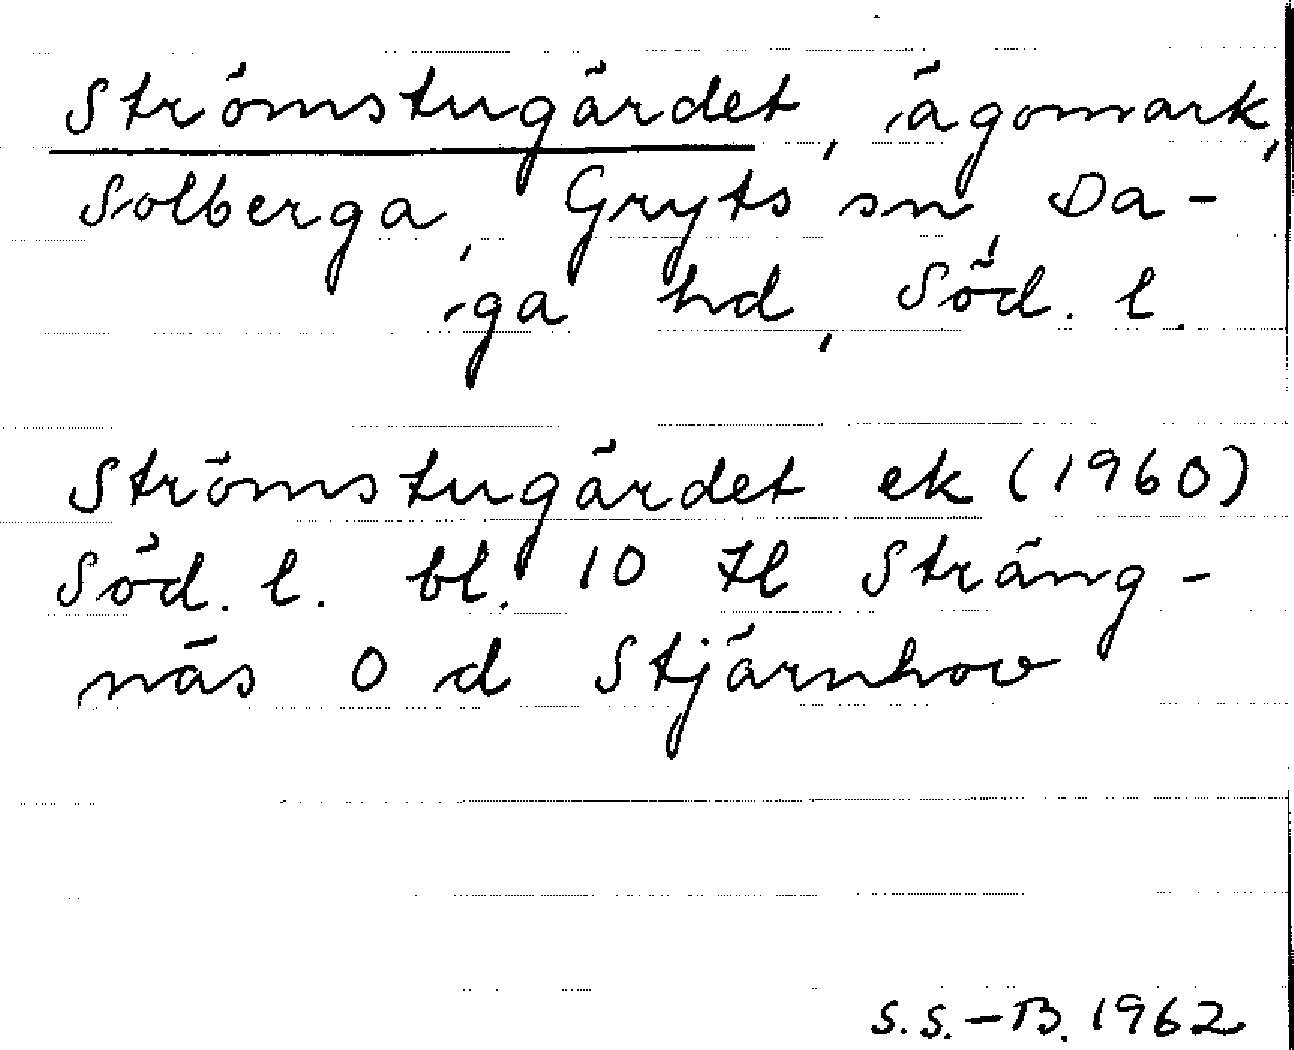 Strömstugärdet, ägomark,
Solberga, Gryts sn, Da-
ga hd, Söd. l.
Strömstugärdet ek (1960)
Söd. l. bl. 10 Hl Sträng-
näs O d Stjärnhov
S.S.-B. 1962